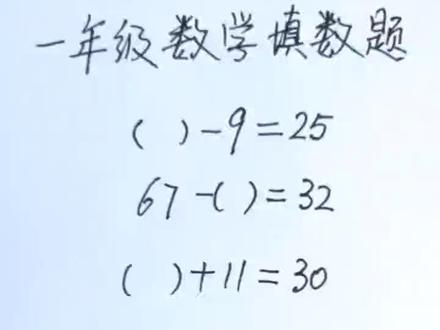 一年级数学填数题
( )-9=25
67-( )=32
( )+11=30